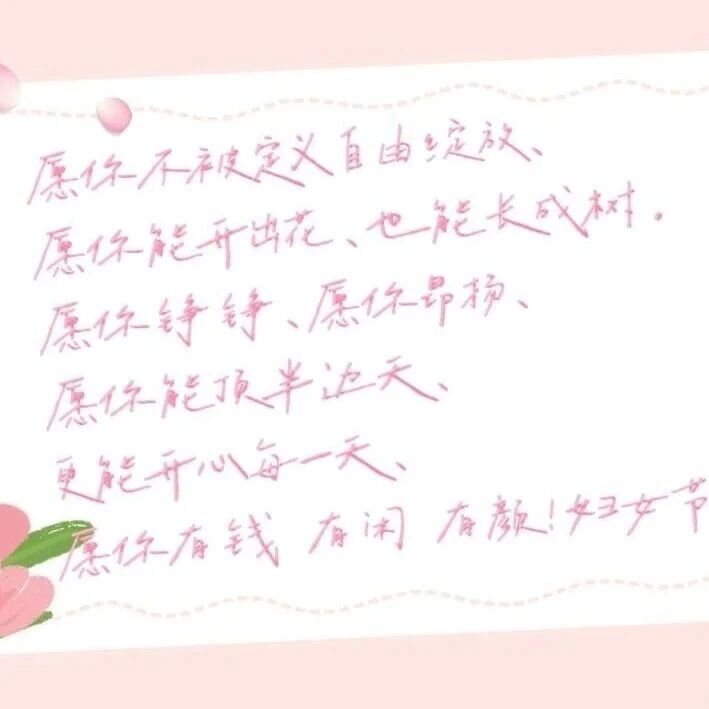 愿你不被定义自由绽放、
愿你能开出花、也能长成树.
愿你铮铮、愿你昂扬、
愿你能顶半边天、
更能开心每一天、
愿你有钱 有闲 有颜!妇女节